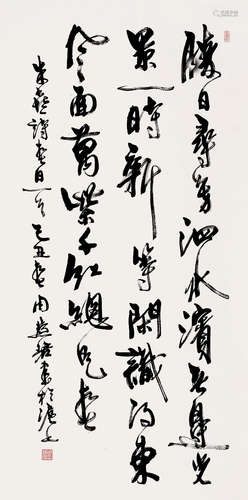 勝日尋芳泗水濱無邊光
景一時新等閒識得東
風面萬紫千紅總是春
朱熹詩春日一首己丑春周慧珺書於滬上